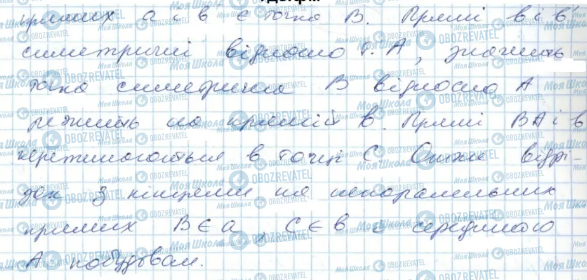 прямих a і b' є точка B. Прямі b і b'
симетричні відносно т. A, значить
точка симетрична B відносно A
лежить на прямій b. Прямі BA і b
перетинаються в точці C. Отже відрі-
зок з кінцями на непаралельних
прямих B ∈ a, C ∈ b і серединою
A побудован.